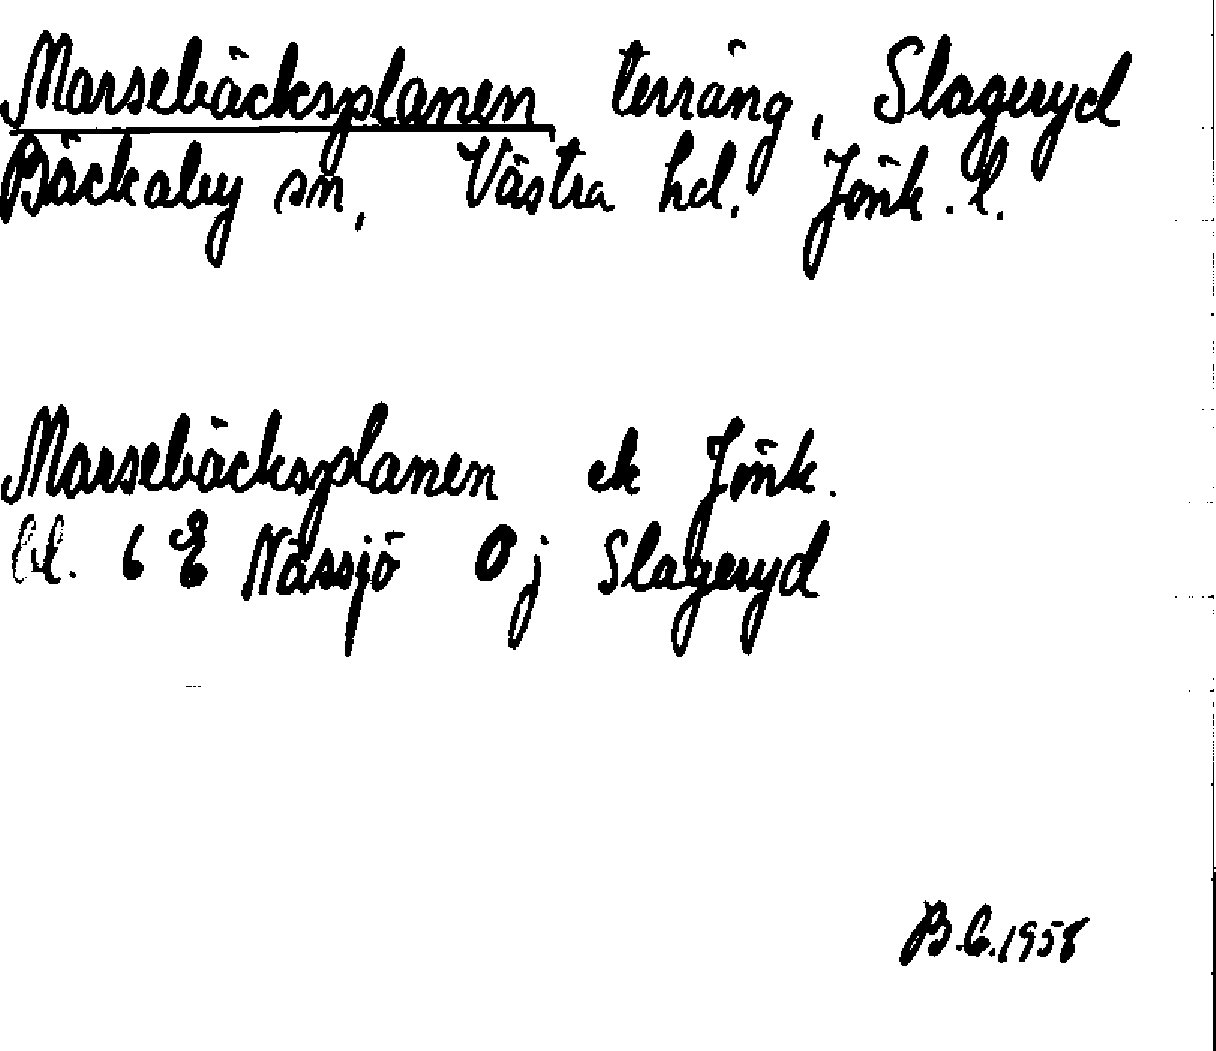 Marsebäcksplanen terräng, Slageryd
Bäckaby sn, Västra hd. Jönk. l.
Marsebäcksplanen ek Jönk.
bl. 6 E Nässjö 0 j Slageryd
1958